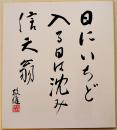 日にいちど
入る日は沈み
信天翁